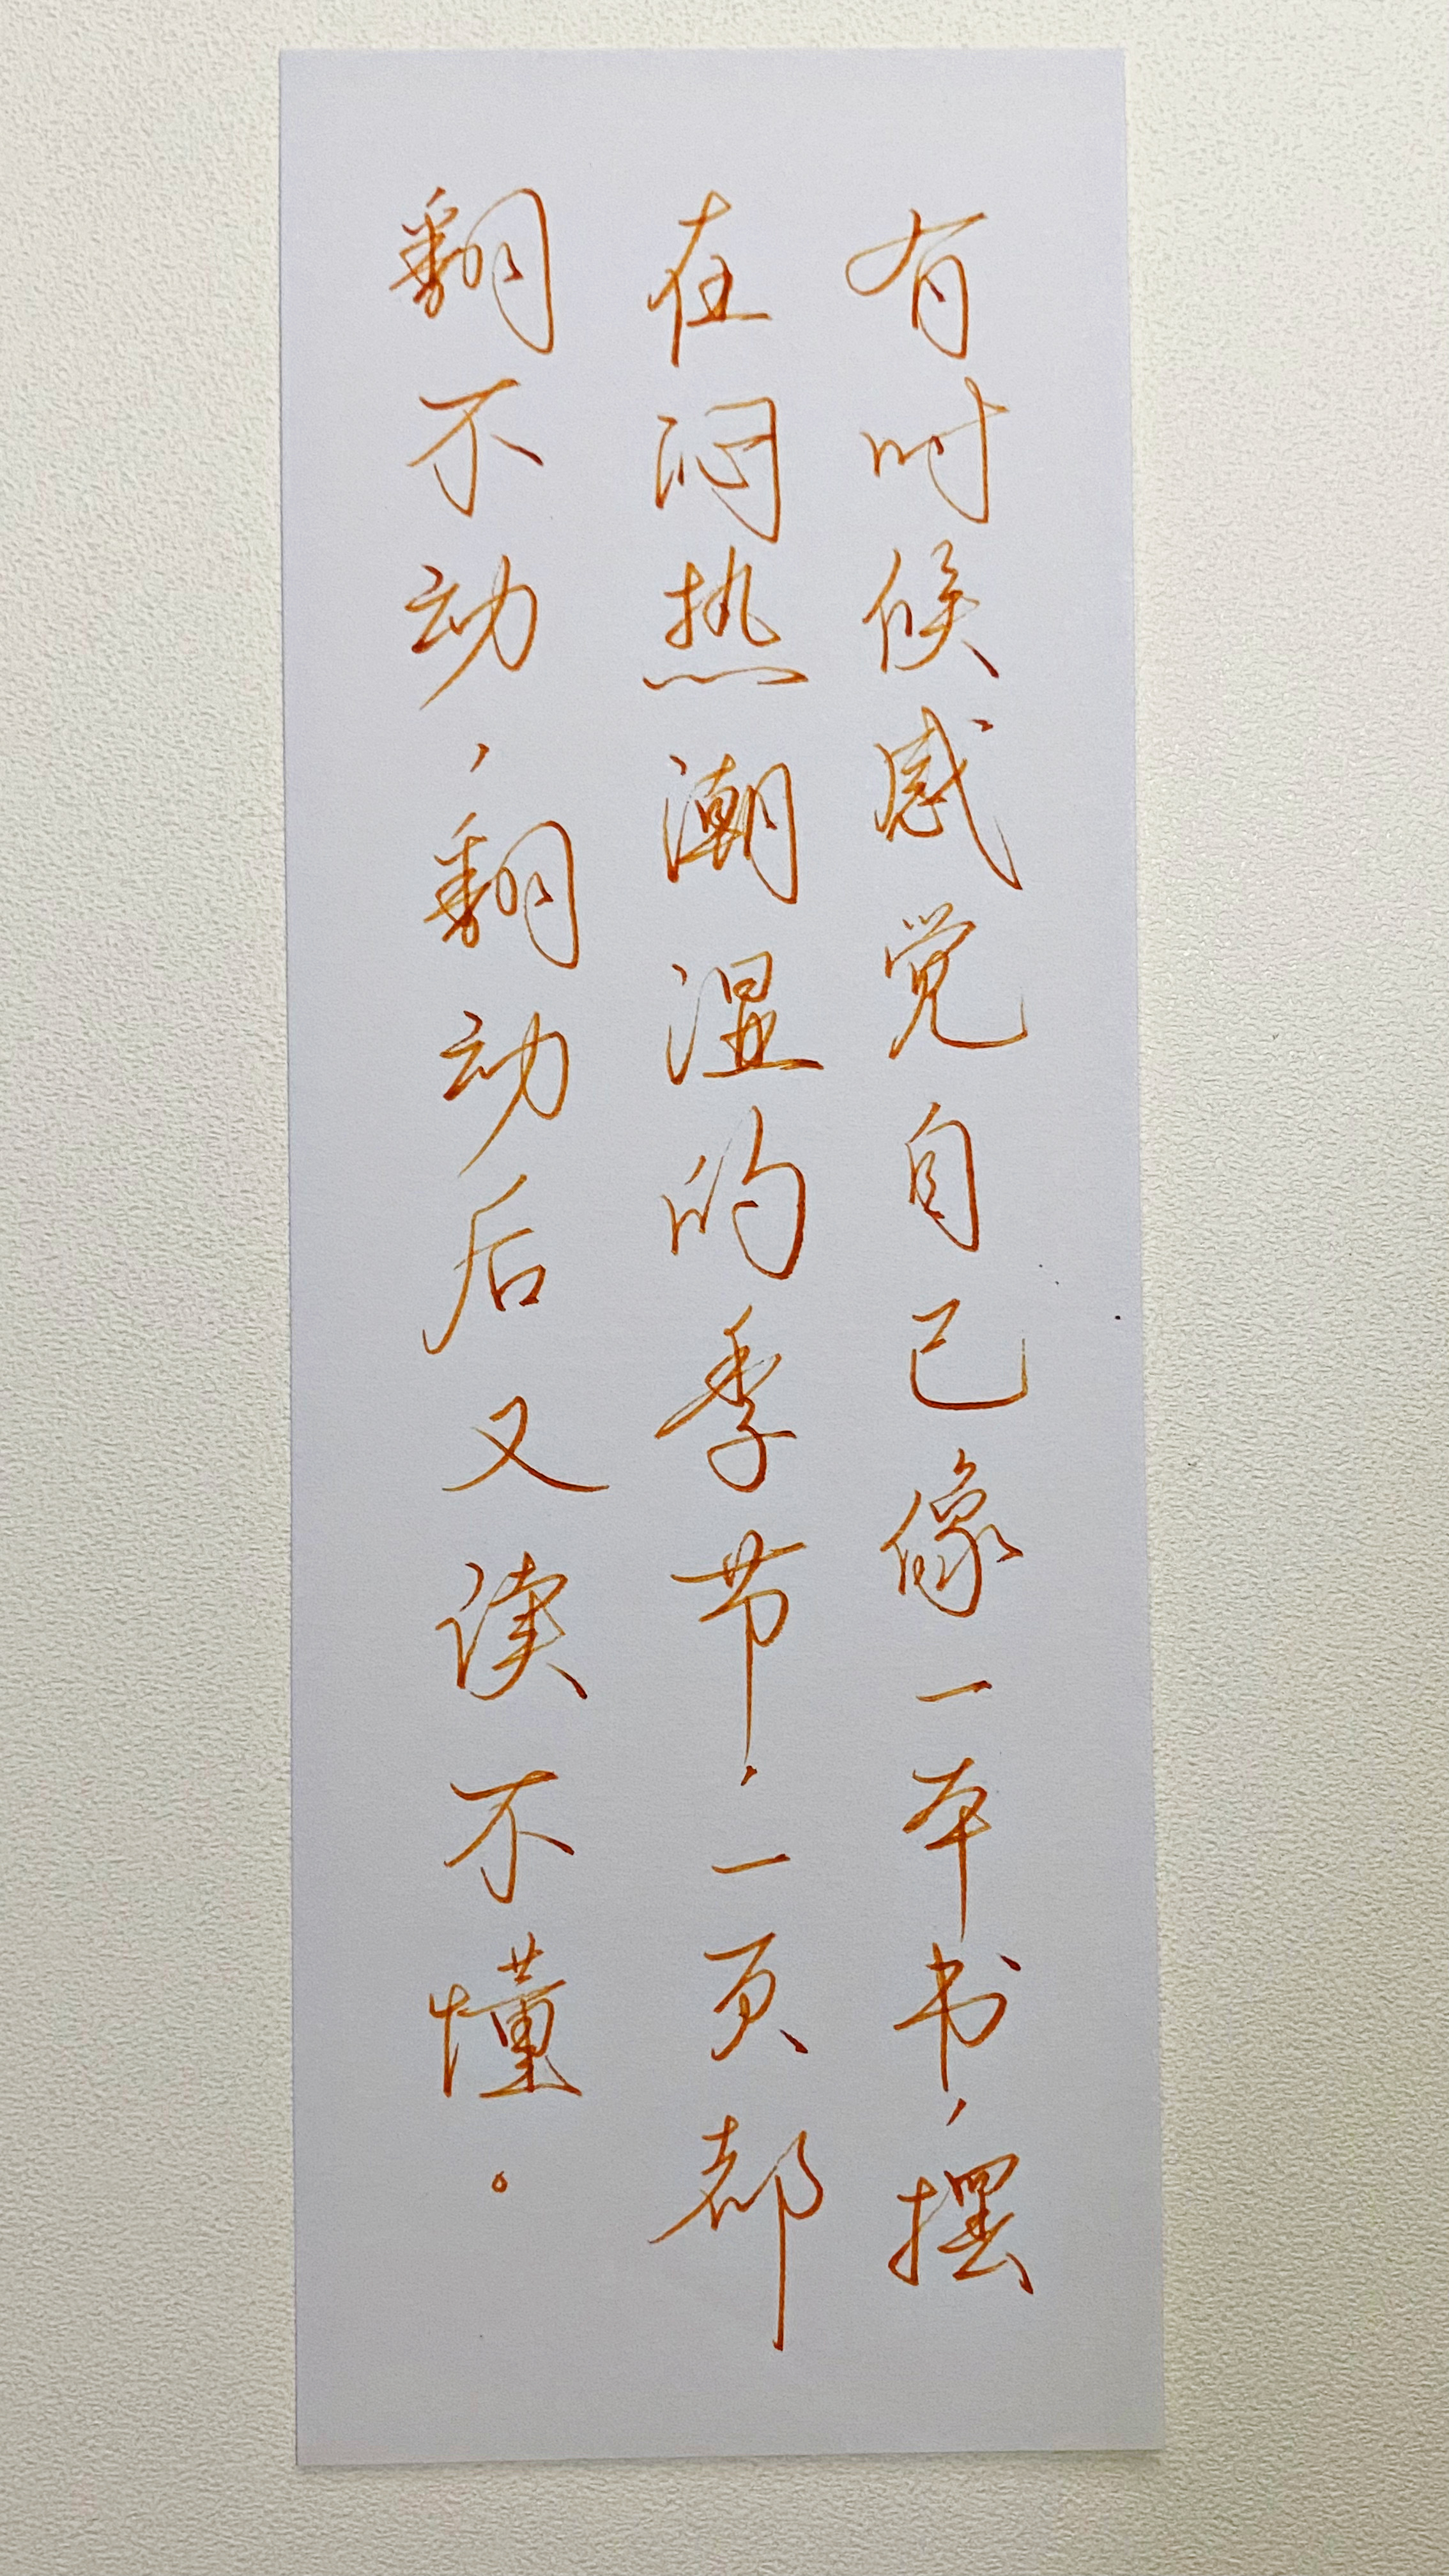 有时候感觉自己像一本书，摆
在闷热潮湿的季节，一页都
翻不动，翻动后又读不懂。